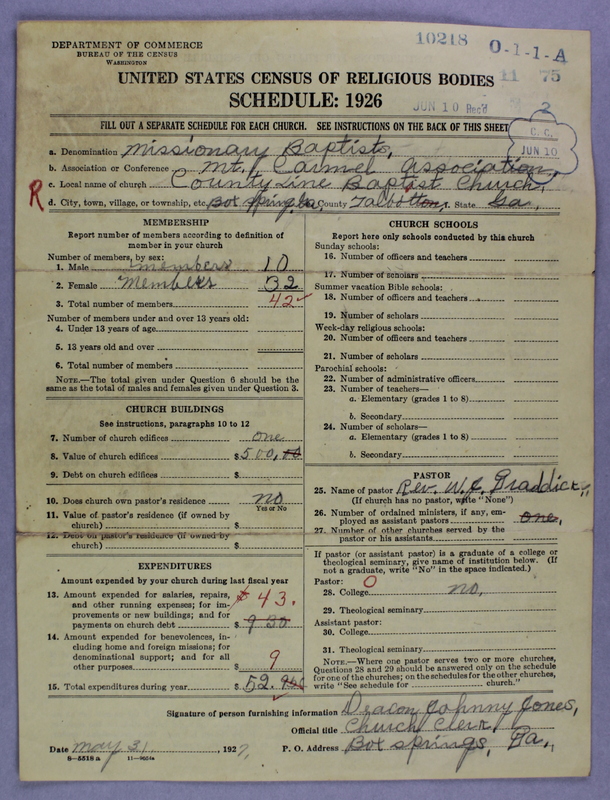 DEPARTMENT OF COMMERCE
BUREAU OF THE CENSUS
WASHINGTON
10218
O-1-1-A
11 75
UNITED STATES CENSUS OF RELIGIOUS BODIES
SCHEDULE: 1926
JUN 10 Rec'd
2
FILL OUT A SEPARATE SCHEDULE FOR EACH CHURCH. SEE INSTRUCTIONS ON THE BACK OF THIS SHEET
C. C.
JUN 10
a. Denomination Missionary Baptist,
b. Association or Conference Mt. Carmel Association,
c. Local name of church County Line Baptist Church,
R
d. City, town, village, or township, etc. Box Springs Ga, County Talbotton, State Ga,
MEMBERSHIP
Report number of members according to definition of member in your church
Number of members, by sex:
1. Male members 10
2. Female Members 32
3. Total number of members 42
Number of members under and over 13 years old:
4. Under 13 years of age
5. 13 years old and over
6. Total number of members
NOTE.—The total given under Question 6 should be the same as the total of males and females given under Question 3.
CHURCH BUILDINGS
See instructions, paragraphs 10 to 12
7. Number of church edifices one
8. Value of church edifices $500,00
9. Debt on church edifices $
10. Does church own pastor's residence no
Yes or No
11. Value of pastor's residence (if owned by church) $
12. Debt on pastor's residence (if owned by church) $
EXPENDITURES
Amount expended by your church during last fiscal year
13. Amount expended for salaries, repairs, and other running expenses; for improvements or new buildings; and for payments on church debt $ 43.
$ 9 30
14. Amount expended for benevolences, including home and foreign missions; for denominational support; and for all other purposes $ 9
15. Total expenditures during year $ 52.
CHURCH SCHOOLS
Report here only schools conducted by this church
Sunday schools:
16. Number of officers and teachers
17. Number of scholars
Summer vacation Bible schools:
18. Number of officers and teachers
19. Number of scholars
Week-day religious schools:
20. Number of officers and teachers
21. Number of scholars
Parochial schools:
22. Number of administrative officers
23. Number of teachers—
a. Elementary (grades 1 to 8)
b. Secondary
24. Number of scholars—
a. Elementary (grades 1 to 8)
b. Secondary
PASTOR
25. Name of pastor Rev. W. J. Graddick,
(If church has no pastor, write "None")
26. Number of ordained ministers, if any, employed as assistant pastors one,
27. Number of other churches served by the pastor or his assistants
If pastor (or assistant pastor) is a graduate of a college or theological seminary, give name of institution below. (If not a graduate, write "No" in the space indicated.)
Pastor: O
28. College no,
29. Theological seminary
Assistant pastor:
30. College
31. Theological seminary
NOTE.—Where one pastor serves two or more churches, Questions 28 and 29 should be answered only on the schedule for one of the churches; on the schedules for the other churches, write "See schedule for church."
Signature of person furnishing information Deacon Johnny Jones,
Official title Church Clerk,
Date may 31, 1927,
P. O. Address Box Springs, Ga,
8—5518 a